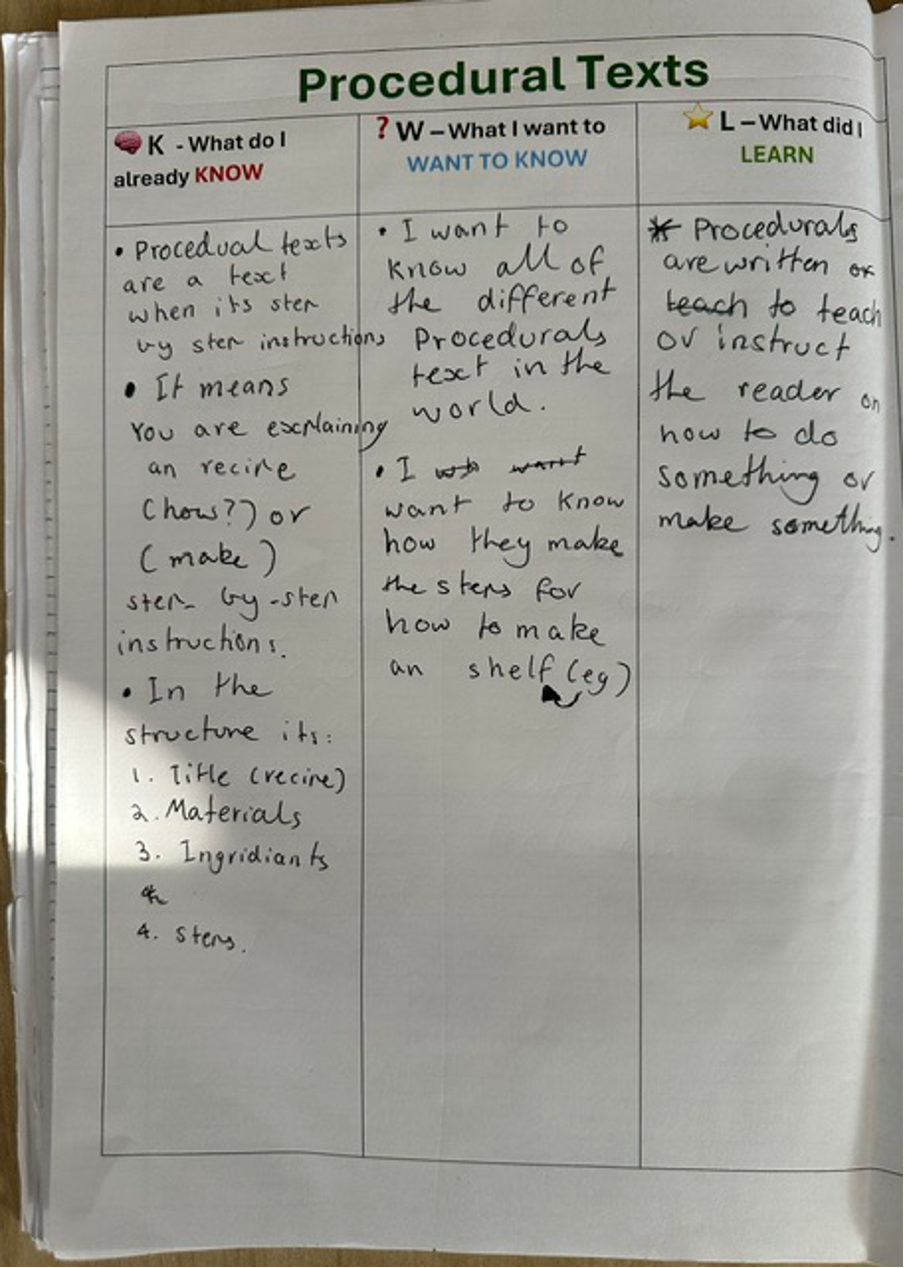 Procedural Texts
K - What do I
already KNOW
• Procedual texts
are a text
when its step
by step instructions
• It means
You are explaining
an recipe
(how?) or
(make)
step- by-step
instructions.
• In the
structure its:
1. Title (recipe)
2. Materials
3. Ingridiants
4. steps.
? W – What I want to
WANT TO KNOW
• I want to
know all of
the different
Procedurals
text in the
world.
• I want
want to know
how they make
the steps for
how to make
an shelf (eg)
L – What did I
LEARN
* Procedurals
are written or
teach to teach
or instruct
the reader on
how to do
something or
make something.